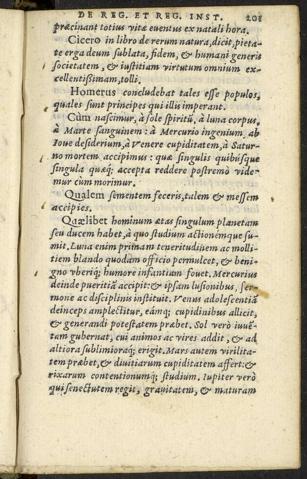 DE REG. ET REG. INST. 201
præcinant totius vitæ euentus ex natali hora.
Cicero in libro de rerum natura, dicit, pieta-
te erga deum sublata, fidem, & humani generis
societatem, & iustitiam virtutum omnium ex-
cellentissimam, tolli.
Homerus concludebat tales esse populos,
quales sunt principes qui illis imperant.
Cùm nascimur, à sole spiritũ, à luna corpus,
à Marte sanguinem: à Mercurio ingenium, ab
Ioue desiderium, à Venere cupiditatem, à Satur-
no mortem accipimus: quæ singulis quibusque
singula quæq; accepta reddere postremò vide-
mur cùm morimur.
Qualem sementem feceris, talem & messem
accipies.
Quælibet hominum ætas singulum planetam
seu ducem habet, à quo studium actionémque su-
mit. Luna enim primam teneritudinem ac molli-
tiem blando quodam officio permulcet, & beni-
gno vberiq; humore infantium fouet. Mercurius
deinde pueritiã accipit: & ipsam lusionibus, ser-
mone ac disciplinis instituit. Venus adolescentiã
deinceps amplectitur, eámq; cupidinibus allicit,
& generandi potestatem præbet. Sol verò iuuẽ-
tam gubernat, cui animos ac vires addit, & ad
altiora sublimioraq; erigit. Mars autem virilita-
tem præbet, & diuitiarum cupiditatem affert: &
rixarum contentionumq; studium. Iupiter verò
qui senectutem regit, grauitatem, & maturam